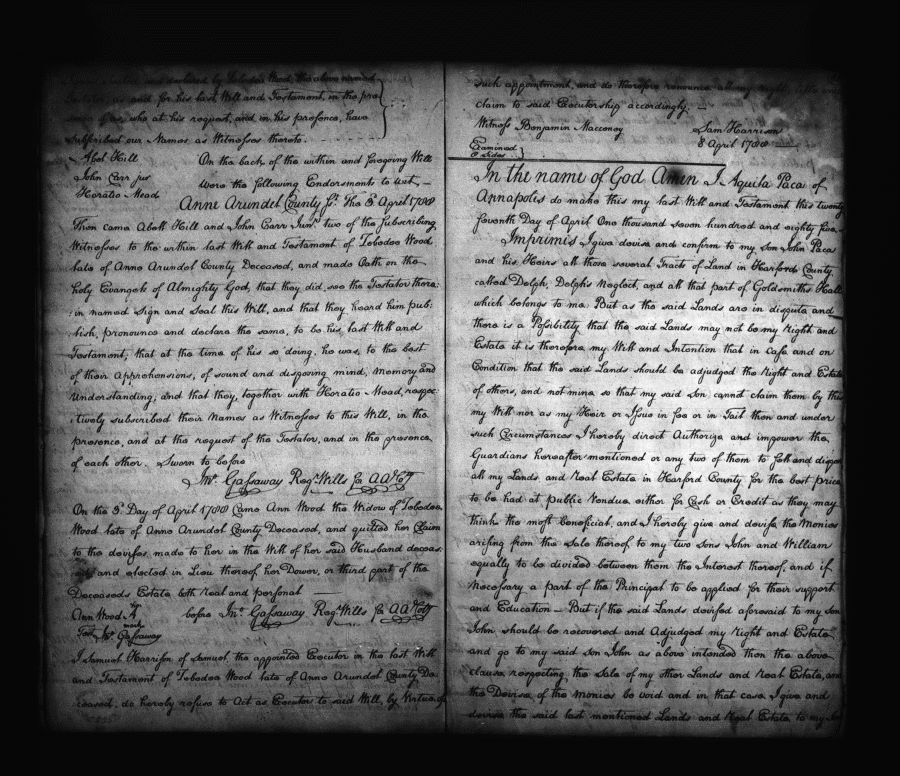 and declared by Tobadoa Wood, the above named
as and for his last Will and Testament, in the pre
who at his request, and in his presence, have
subscribed our Names as Witnesses thereto.
Abel Hill
John Carr jur
Horatio Mead
On the back of the within and foregoing Will
were the following Endorsements to wit,—
Anne Arundel County Sc. The 8 April 1788
Then came Abell Hill and John Carr Junr. two of the subscribing
Witnesses to the within last Will and Testament of Tobadoa Wood
late of Anne Arundel County Deceased, and made Oath on the
holy Evangels of Almighty God, that they did, see the Testator there:
in named Sign and Seal this Will, and that they heard him pub:
lish, pronounce and declare the same, to be his, last Will and
Testament; that at the time of his so doing, he was, to the best
of their apprehensions, of sound and disposing mind, Memory and
Understanding, and that they, together with Horatio Mead, respec:
tively subscribed their Names as Witnesses to this Will, in the
presence, and at the request of the Testator, and in the presence,
of each other. Sworn to before
Jno. Gassaway Regr. Wills for AA Coty
On the 8th Day of April 1788 Came Ann Wood the Widow of Tobadoa
Wood late of Anne Arundel County Deceased, and quitted her Claim
to the devises, made to her in the Will of her said Husband deceas:
and elected in Lieu thereof her Dower, or third part of the
Deceaseds Estate both real and personal —
Ann Wood
her
mark
before Jno. Gassaway Regr. Wills for AA Coty
Test Jno. Gassaway
I Samuel Harrison of Samuel the appointed Executor in the last Will
and Testament of Tobadoa Wood late of Anne Arundel County De
ceased, do hereby refuse to Act as Executor to said Will, by Virtue of
such appointment, and do therefore renounce all my right
claim to said Executorship accordingly. —
Witness Benjamin Macconoy
Sam Harrison
8 April 1788
Examined
Sides
In the name of God Amen I Aquila Paca of
Annapolis do make this my last Will and Testament this twenty
seventh Day of April One thousand seven hundred and eighty five.—
Imprimis I give devise and confirm to my son John Paca
and his Heirs all those several Tracts of Land in Harford County
called Delph, Delphs Neglect, and all that part of Goldsmiths Hall
which belongs to me. But as the said Lands are in dispute and
there is a Possibility that the said Lands may not be my Right and
Estate it is therefore my Will and Intention that in Case and on
Condition that the said Lands should be adjudged the right and Estate
of others, and not mine so that my said son, cannot claim them by this
my Will nor as my Heir or Issue in fee or in Tail then and under
such Circumstances I hereby direct Authorize and impower the,
Guardians hereafter mentioned or any two of them to sell and dispose
all my Lands and Real Estate in Harford County for the best price
to be had at public Vendue either for Cash or Credit as they may
think the most beneficial, and I hereby give and devise the Monies
arising from the Sale thereof to my two sons John and William
equally to be divided between them the Interest thereof, and if
necessary a part of the Principal to be applied for their support
and Education — But if the said Lands devised aforesaid to my son
John should be recovered and Adjudged my Right and Estate,
and go to my said son John as above intended then the above
clause respecting the Sale of my other Lands and Real Estate, and
the Devise of the Monies be void and in that case I give and
devise the said last mentioned Lands and Real Estate to my